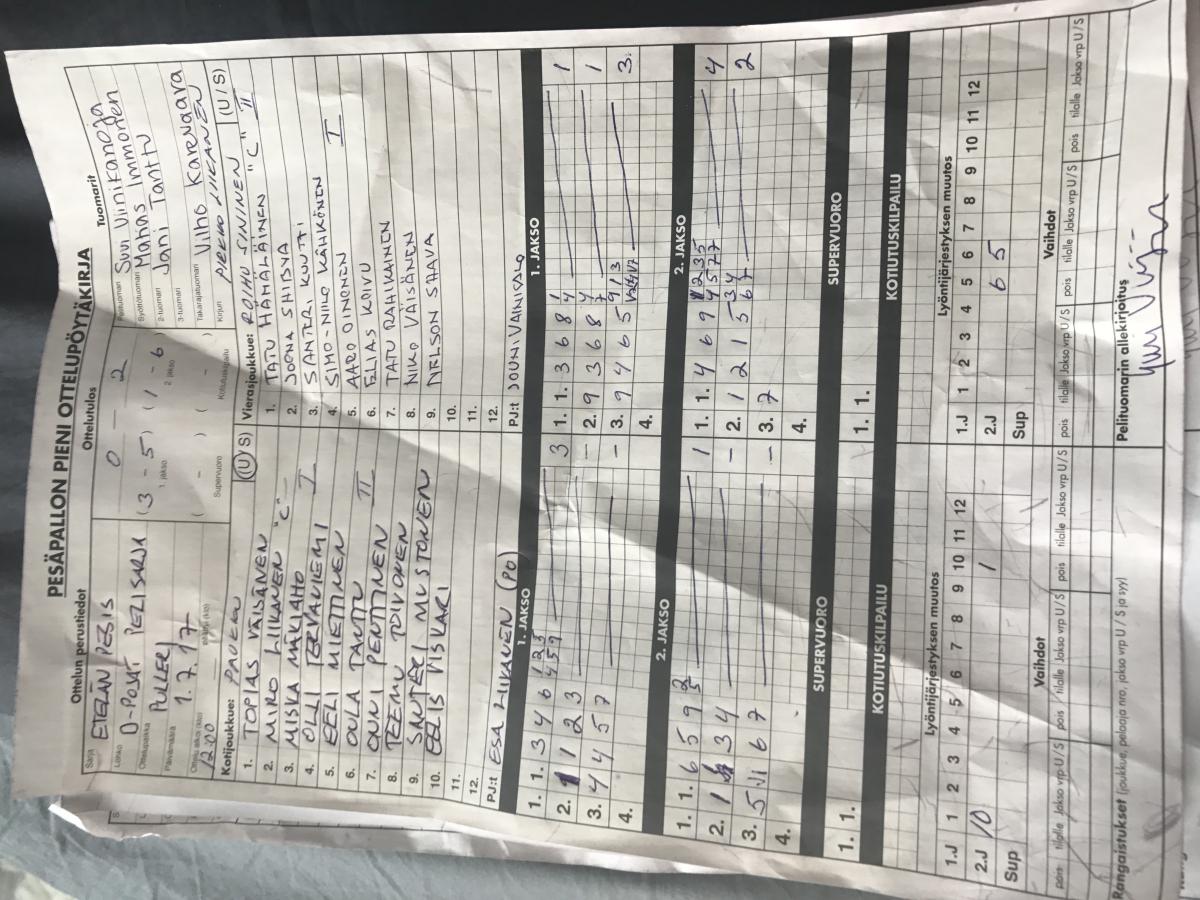 PESÄPALLON PIENI OTTELUPÖYTÄKIRJA
Ottelun perustiedot
Ottelutulos
Tuomarit
Sarja ETELÄN PESIS
Lohko D-POJAT PERUSSARJA
Ottelupaikka PULLERI
Päivämäärä 1.7.17
12.00
0 – 2
(3 – 5) (1 – 6)
1. jakso 2. jakso
( – ) ( – )
Supervuoro Kotiutuskilpailu
Pelituomari Suvi Viinikanoja
Syöttötuomari Matias Immonen
2-tuomari Jani Tanttu
3-tuomari
Takarajatuomari Viho Karevaara
Kirjuri PIRKKO LIIKANEN
Kotijoukkue: (U/S)
1. TOPIAS VÄISÄNEN
2. MIRO LIIKANEN "C"
3. MISKA MÄKIAHO
4. OLLI TERVANIEMI I
5. EELI MIETTINEN
6. OULA TANTTU II
7. ONNI PENTTINEN
8. TEEMU TOIVONEN
9. SANTERI MUSTONEN
10. EELIS VISKARI
11.
12.
PJ:t ESA LIIKANEN (PO)
Vierasjoukkue: ROIHU SININEN (U/S)
1. TATU HÄMÄLÄINEN "C" II
2. JOONA SHISVA
3. SANTERI KUUTTI
4. SIMO-NIILO KÄHKÖNEN I
5. AARO OINONEN
6. ELIAS KOIVU
7. TATU RAHIKAINEN
8. NIKO VÄISÄNEN
9. NELSON SHAVA
10.
11.
12.
PJ:t JOUNI VAINIKALO
1. JAKSO
1. 1. 3 4 6 1 2 3 3
4 5 9
2. 1 1 2 3 –
3. 4 4 5 7 –
4.
1. JAKSO
1. 1. 3 6 8 1 1
4
2. 9 3 6 8 4 1
7
3. 9 4 6 5 9 1 3 3
4.
2. JAKSO
1. 1. 6 5 9 2 1
5
2. 1 3 4 –
3. 5 6 7 –
4.
2. JAKSO
1. 1. 4 6 9 1 2 3 5 4
4 5 7 7
2. 1 2 1 5 3 4 2
6 7
3. 7
4.
SUPERVUORO
1. 1.
SUPERVUORO
1. 1.
KOTIUTUSKILPAILU
KOTIUTUSKILPAILU
Lyöntijärjestyksen muutos
1.J 1 2 3 4 5 6 7 8 9 10 11 12
2.J 10 1
Sup
Lyöntijärjestyksen muutos
1.J 1 2 3 4 5 6 7 8 9 10 11 12
2.J 6 5
Sup
Vaihdot
pois tilalle Jakso vrp U/S pois tilalle Jakso vrp U/S pois tilalle Jakso vrp U/S
Vaihdot
pois tilalle Jakso vrp U/S pois tilalle Jakso vrp U/S pois tilalle Jakso vrp U/S
Rangaistukset (joukkue, pelaaja nro, jakso vrp U/S ja syy)
Pelituomarin allekirjoitus